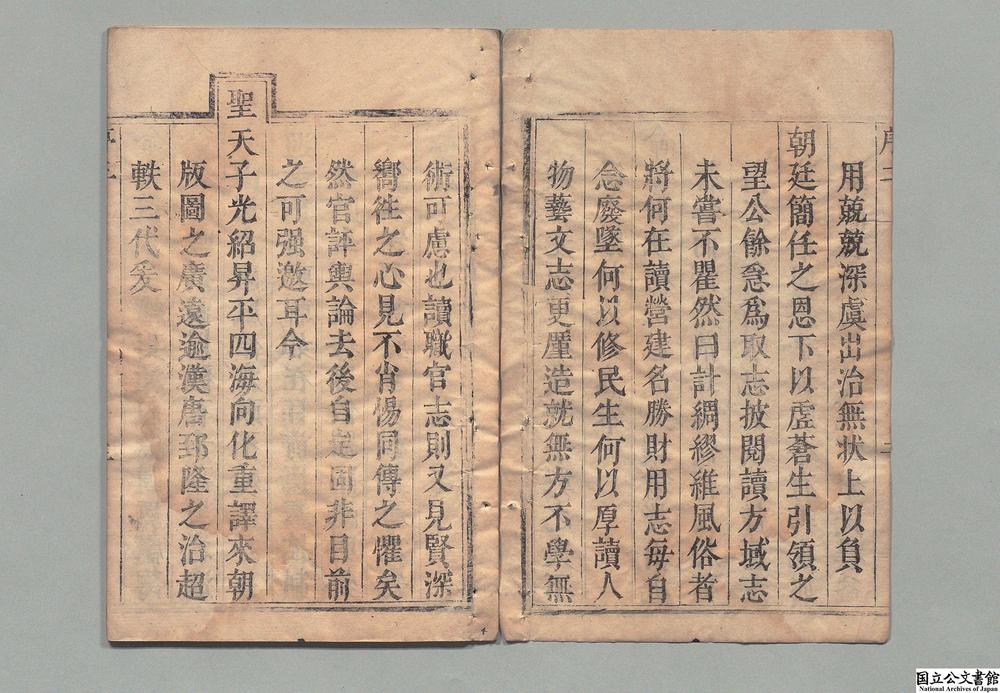 用兢兢深虞出治無状上以負
朝廷簡任之恩下以虛蒼生引領之
望公餘亟爲取志披閱讀方域志
未嘗不瞿然曰計綢繆維風俗者
將何在讀營建名勝財用志每自
念廢墜何以修民生何以厚讀人
物藝文志更厪造就無方不學無
術可慮也讀職官志則又見賢深
嚮徃之心見不肖惕同傳之懼矣
然官評輿論去後自定固非目前
之可强邀耳今
聖天子光紹昇平四海向化重譯來朝
版圖之廣遠逾漢唐郅隆之治超
軼三代爰
国立公文書館
National Archives of Japan